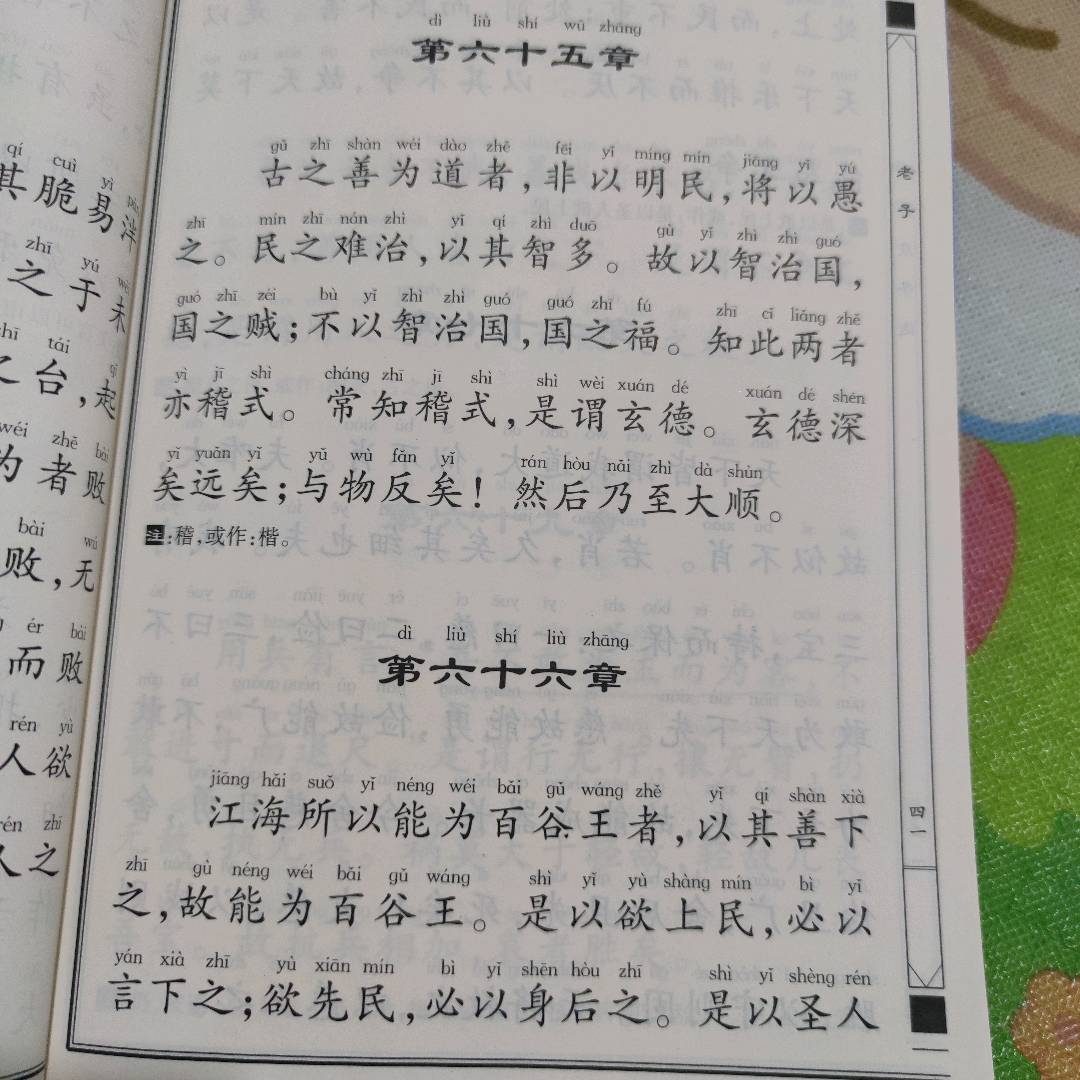 dì liù shí wǔ zhāng
第六十五章
gǔ zhī shàn wéi dào zhě fēi yǐ míng mín jiāng yǐ yú
古之善为道者,非以明民,将以愚
zhī mín zhī nán zhì yǐ qí zhì duō gù yǐ zhì zhì guó
之。民之难治,以其智多。故以智治国,
guó zhī zéi bù yǐ zhì zhì guó guó zhī fú zhī cǐ liǎng zhě
国之贼;不以智治国,国之福。知此两者
yì jī shì cháng zhī jī shì shì wèi xuán dé xuán dé shēn
亦稽式。常知稽式,是谓玄德。玄德深
yǐ yuǎn yǐ yǔ wù fǎn yǐ rán hòu nǎi zhì dà shùn
矣远矣;与物反矣!然后乃至大顺。
注:稽,或作:楷。
dì liù shí liù zhāng
第六十六章
jiāng hǎi suǒ yǐ néng wéi bǎi gǔ wáng zhě yǐ qí shàn xià
江海所以能为百谷王者,以其善下
zhī gù néng wéi bǎi gǔ wáng shì yǐ yù shàng mín bì yǐ
之,故能为百谷王。是以欲上民,必以
yán xià zhī yù xiān mín bì yǐ shēn hòu zhī shì yǐ shèng rén
言下之;欲先民,必以身后之。是以圣人
老子
四一
qí cuì yì
其脆易泮
zhī yú wèi
之于未
tái qǐ
之台,起
wéi zhě bài
为者败
bài wú
败,无
ér bài
而败
rén yù
人欲
rén zhī
人之